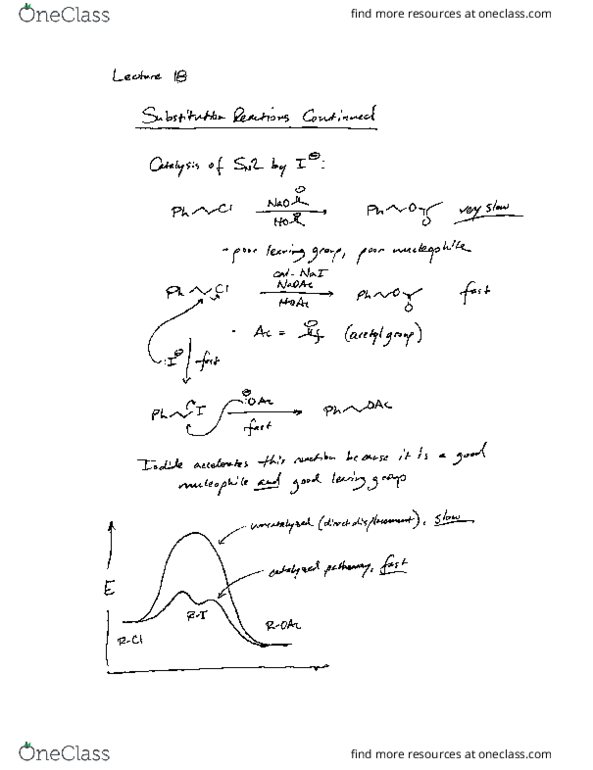 OneClass
find more resources at oneclass.com
Lecture 18
Substitution Reactions Continued
Catalysis of SN2 by I⊖:
Ph Cl NaO ⊖ HO Ph O O very slow
- poor leaving group, poor nucleophile
cat. NaI
Ph Cl NaOAc HOAc Ph O O fast
· Ac = O (acetyl group)
:I⊖ fast
Ph I ⊖:OAc fast Ph OAc
Iodide accelerates this reaction because it is a good
nucleophile and good leaving group
uncatalyzed (direct displacement), slow
catalyzed pathway, fast
E
R-I
R-Cl
R-OAc
OneClass
find more resources at oneclass.com